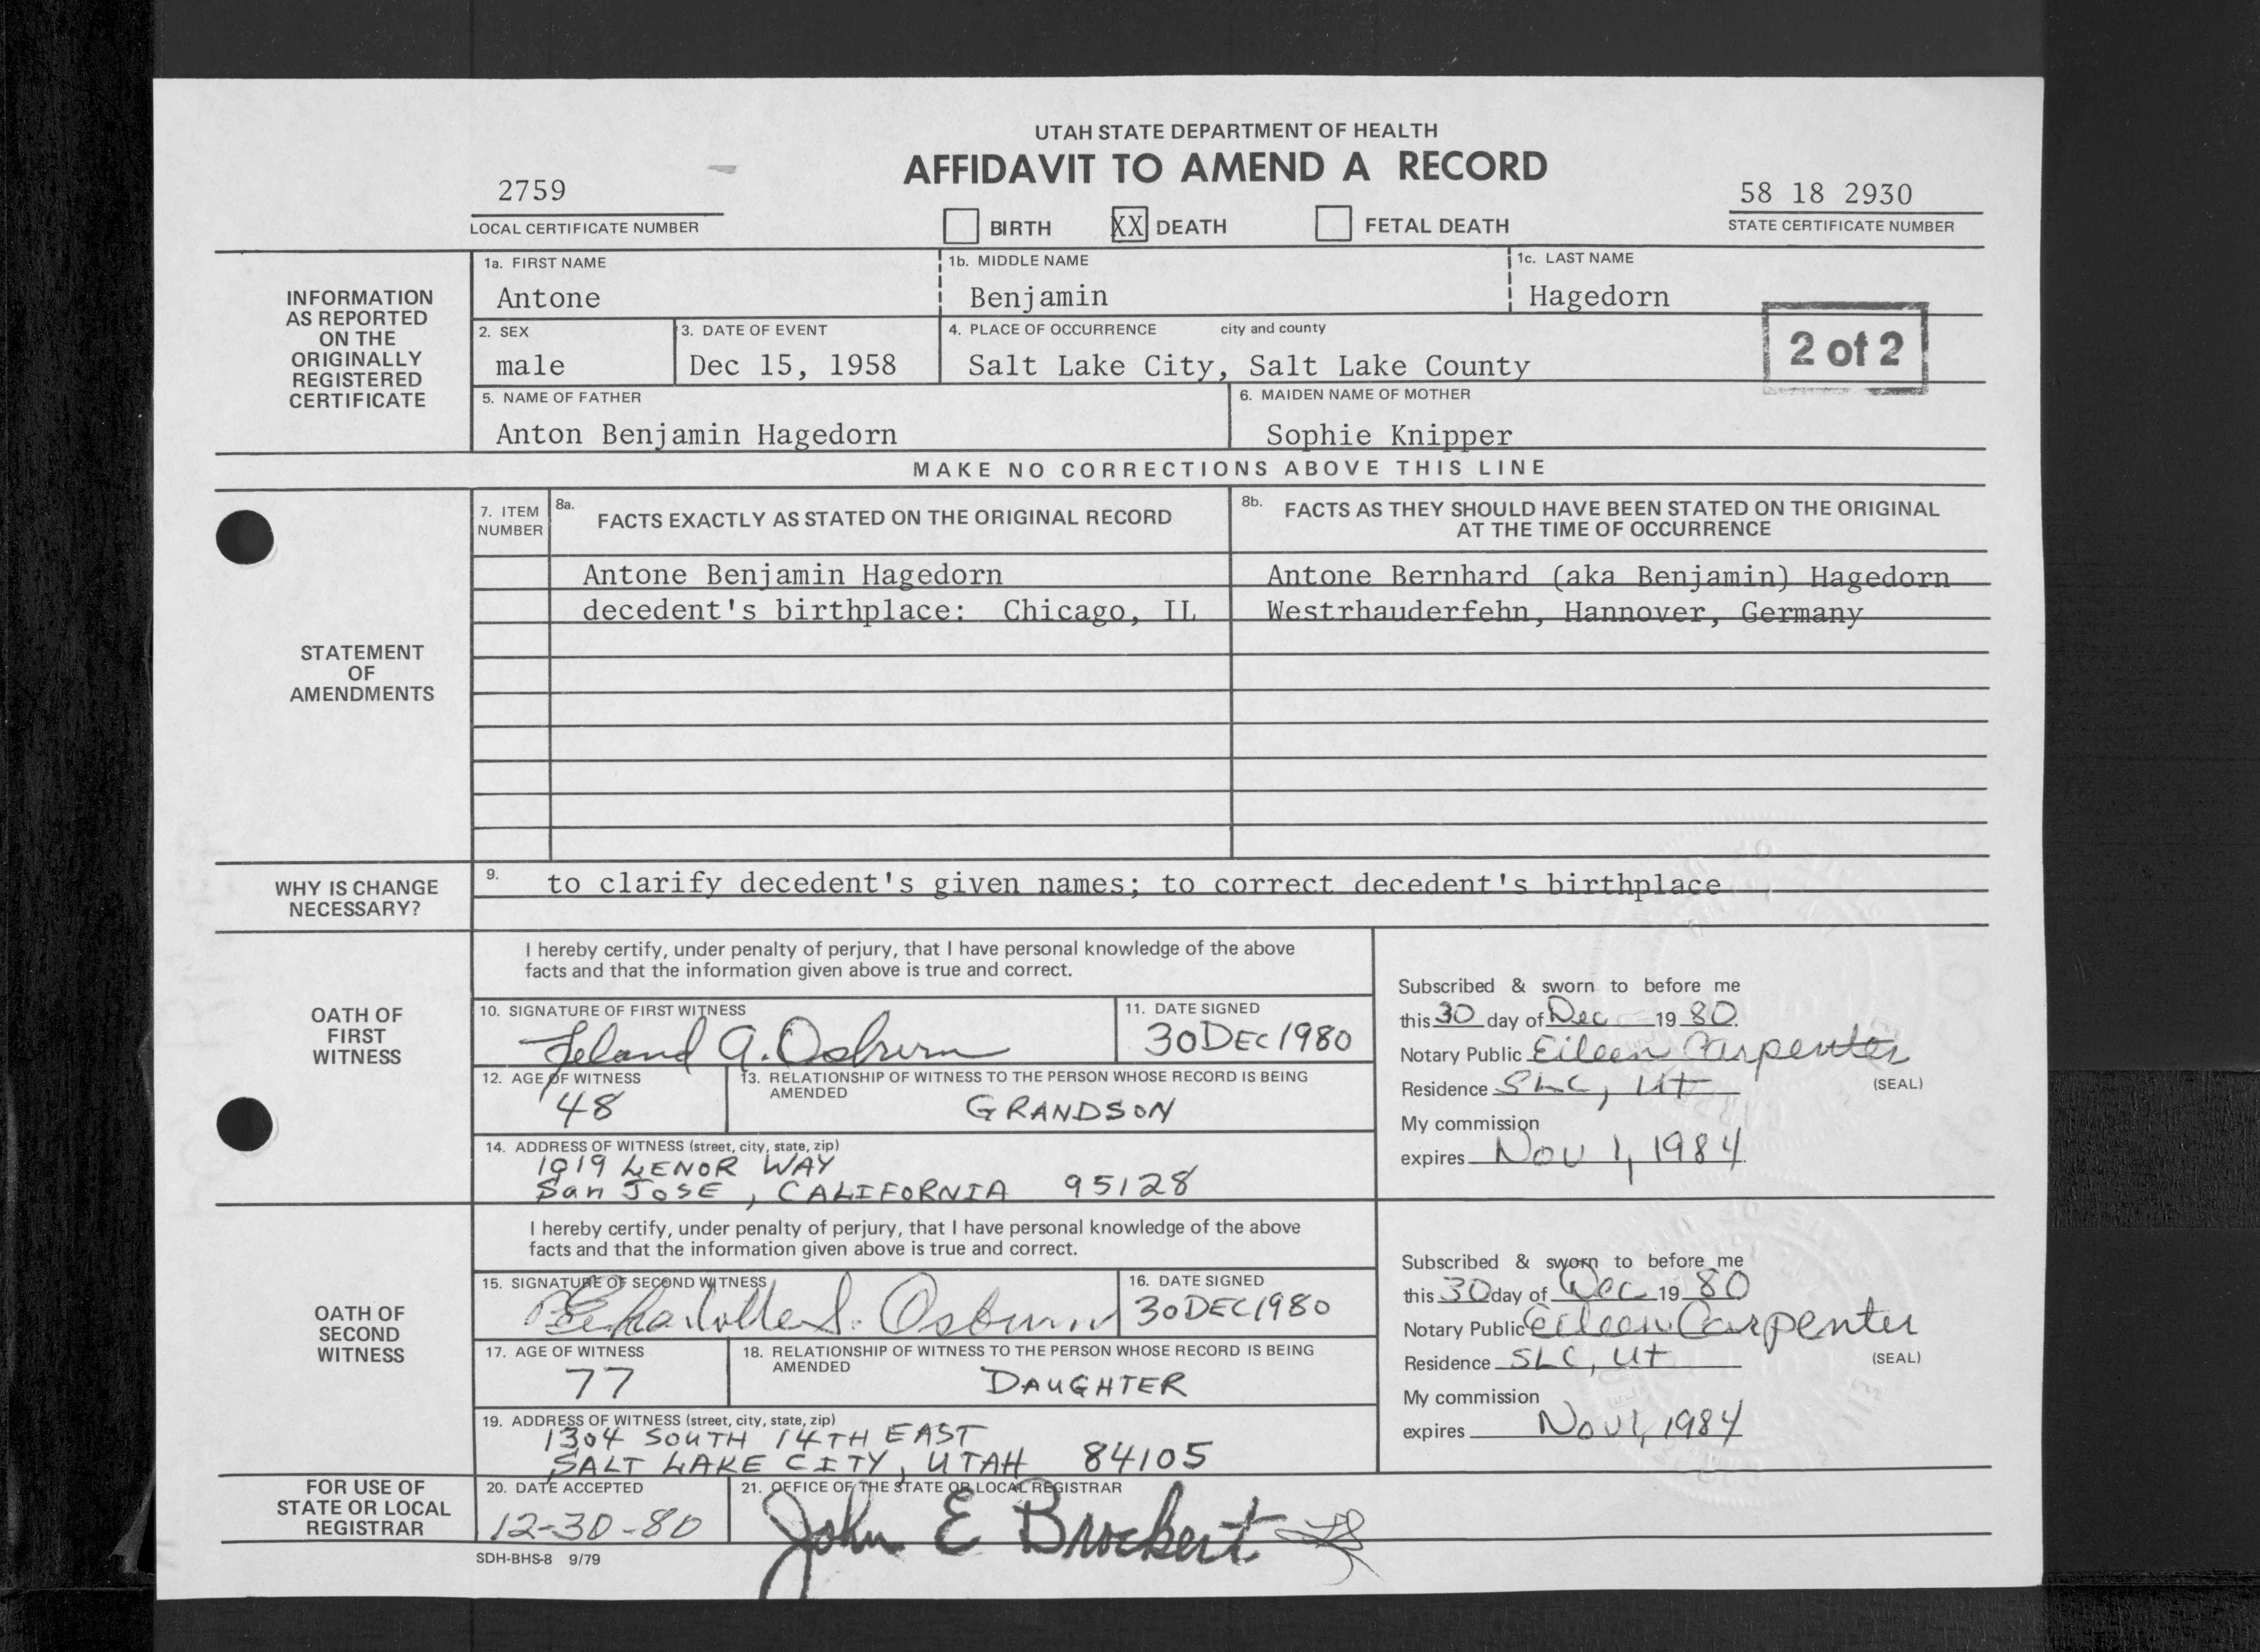 UTAH STATE DEPARTMENT OF HEALTH
AFFIDAVIT TO AMEND A RECORD
2759
LOCAL CERTIFICATE NUMBER
BIRTH XX DEATH FETAL DEATH
58 18 2930
STATE CERTIFICATE NUMBER
INFORMATION AS REPORTED ON THE ORIGINALLY REGISTERED CERTIFICATE
1a. FIRST NAME
Antone
1b. MIDDLE NAME
Benjamin
1c. LAST NAME
Hagedorn
2. SEX
male
3. DATE OF EVENT
Dec 15, 1958
4. PLACE OF OCCURRENCE city and county
Salt Lake City, Salt Lake County
2 of 2
5. NAME OF FATHER
Anton Benjamin Hagedorn
6. MAIDEN NAME OF MOTHER
Sophie Knipper
MAKE NO CORRECTIONS ABOVE THIS LINE
STATEMENT OF AMENDMENTS
7. ITEM NUMBER
8a. FACTS EXACTLY AS STATED ON THE ORIGINAL RECORD
8b. FACTS AS THEY SHOULD HAVE BEEN STATED ON THE ORIGINAL
AT THE TIME OF OCCURRENCE
Antone Benjamin Hagedorn
Antone Bernhard (aka Benjamin) Hagedorn
decedent's birthplace: Chicago, IL
Westrhauderfehn, Hannover, Germany
WHY IS CHANGE NECESSARY?
9. to clarify decedent's given names; to correct decedent's birthplace
OATH OF FIRST WITNESS
I hereby certify, under penalty of perjury, that I have personal knowledge of the above
facts and that the information given above is true and correct.
10. SIGNATURE OF FIRST WITNESS
Leland G. Osburn
11. DATE SIGNED
30 DEC 1980
12. AGE OF WITNESS
48
13. RELATIONSHIP OF WITNESS TO THE PERSON WHOSE RECORD IS BEING
AMENDED
GRANDSON
14. ADDRESS OF WITNESS (street, city, state, zip)
1019 LENOR WAY
San JOSE, CALIFORNIA 95128
Subscribed & sworn to before me
this 30 day of Dec 19 80.
Notary Public Eileen Carpenter
Residence SLC, Ut
(SEAL)
My commission
expires Nov 1, 1984
OATH OF SECOND WITNESS
I hereby certify, under penalty of perjury, that I have personal knowledge of the above
facts and that the information given above is true and correct.
15. SIGNATURE OF SECOND WITNESS
Charlotte S. Osburn
16. DATE SIGNED
30 DEC 1980
17. AGE OF WITNESS
77
18. RELATIONSHIP OF WITNESS TO THE PERSON WHOSE RECORD IS BEING
AMENDED
DAUGHTER
19. ADDRESS OF WITNESS (street, city, state, zip)
1304 SOUTH 14TH EAST
SALT LAKE CITY, UTAH 84105
Subscribed & sworn to before me
this 30 day of Dec 19 80
Notary Public Eileen Carpenter
Residence SLC, Ut
(SEAL)
My commission
expires Nov 1, 1984
FOR USE OF STATE OR LOCAL REGISTRAR
20. DATE ACCEPTED
12-30-80
21. OFFICE OF THE STATE OR LOCAL REGISTRAR
John E Brockert
SDH-BHS-8 9/79